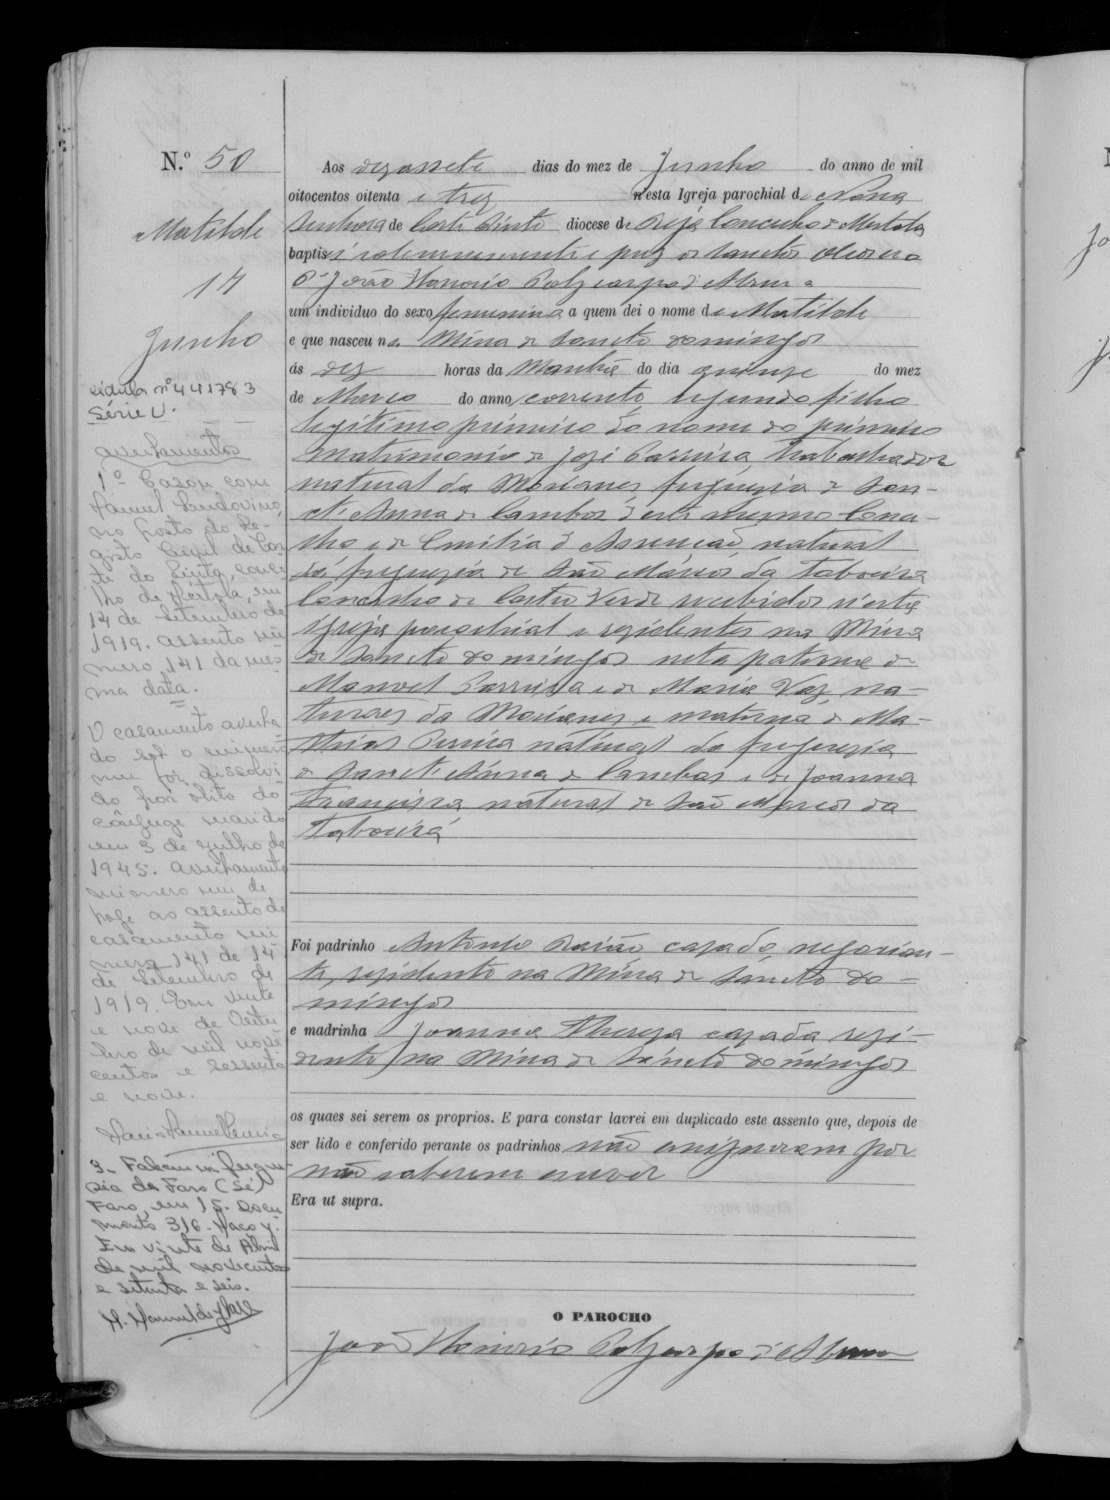 N.º 50
Matilde
17
Junho
cédula nº 441783
Série U.
Averbamentos
1º Casou com
Manuel Ludovino,
no Posto do Re-
gisto Civil de Cor-
te do Pinto, conce-
lho de Mértola, em
14 de Setembro de
1919. Assento nú-
mero 141 da mes-
ma data.
O casamento averba
do sob o número
um foi dissolvi
do por óbito do
cônjuge marido
em 3 de Julho de
1945. Averbamento
número um de
hoje ao assento de
casamento nú
mero 141 de 14
de Setembro de
1919. Em vinte
e nove de
de mil nove
centos e sessenta
e nove.
3- Faleceu na fregue-
sia de Faro (Sé)
Faro, em 15. Docu
mento 316. Maço
Em vinte de Abril
de mil novecentos
e setenta e seis.
Aos dezassete dias do mez de Junho do anno de mil
oitocentos oitenta e trez n'esta Igreja parochial de Nossa
Senhora de Corte Pinto diocese de Beja Concelho de Mertola
baptisei solemnemente e puz os sanctos oleos eu
P.e João Honorio Polycarpo d'Abreu a
um individuo do sexo femenino a quem dei o nome de Matilde
e que nasceu na Mina de Sancto Domingos
ás dez horas da Manhã do dia quinze do mez
de Março do anno corrente, segundo filho
legitimo primeiro do nome do primeiro
matrimonio de José Parreira, trabalhador
natural da Morianes, freguezia de San-
ct'Anna de Cambas d'este mesmo Conce-
lho e de Emilia d'Assenção, natural
da freguezia de São Marcos da Taboeira
Concelho de Castro Verde recebidos n'esta
Igreja parochial e rezidentes na Mina
de Sancto Domingos neta paterna de
Manoel Parreira e de Maria Vaz, na-
turaes da Morianes e materna de Ma-
thias Pereira natural da freguezia
de Sanct'Anna de Cambas e de Joanna
Francisca natural de São Marcos da
Taboeira
Foi padrinho Antonio casado, negocian-
te, rezidente na Mina de Sancto Do-
mingos
e madrinha Joanna Thereza casada rezi-
dente na Mina de Sancto Domingos
os quaes sei serem os proprios. E para constar lavrei em duplicado este assento que, depois de
ser lido e conferido perante os padrinhos não assignaram por
não saberem escrever
Era ut supra.
O PAROCHO
João Honorio Polycarpo d'Abreu